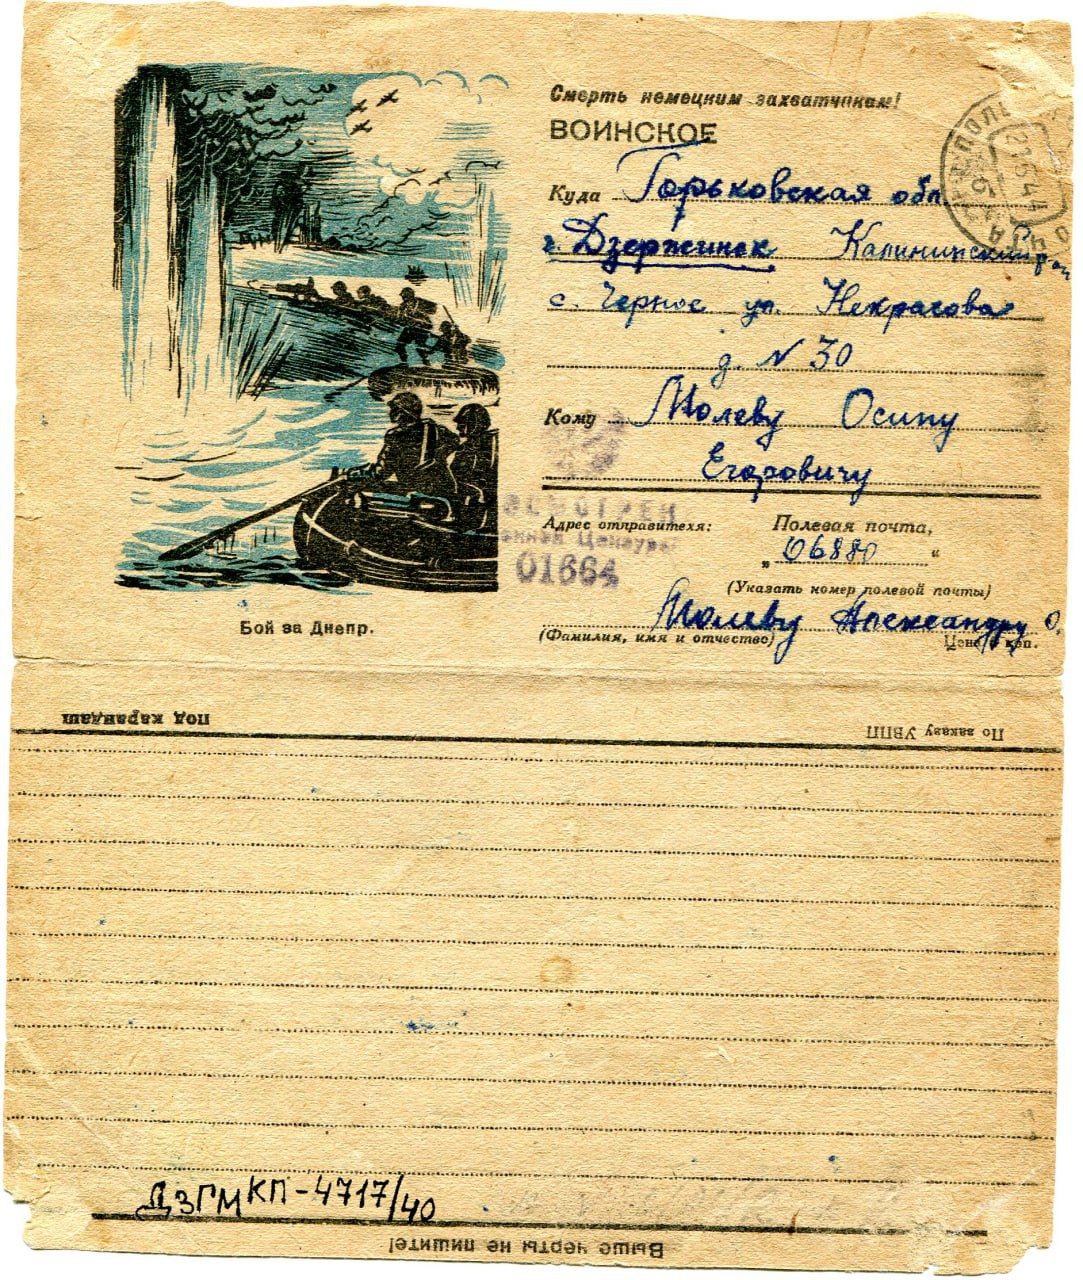 Смерть немецким захватчикам!
ВОИНСКОЕ
Куда Горьковская обл
г. Дзержинск Калининский рон
с. Черное ул. Некрасова
д. N 30
Кому Молеву Осипу
Егоровичу
ОСМОТРЕН
Военной Цензурой
01664
Адрес отправителя: Полевая почта,
„06880“
(Указать номер полевой почты)
Молеву Александру О.
(Фамилия, имя и отчество) Цена коп.
Бой за Днепр.
Под карандаш
По заказу УВПП
ДЗГМ КП-4717/40
Выше черты не пишите!